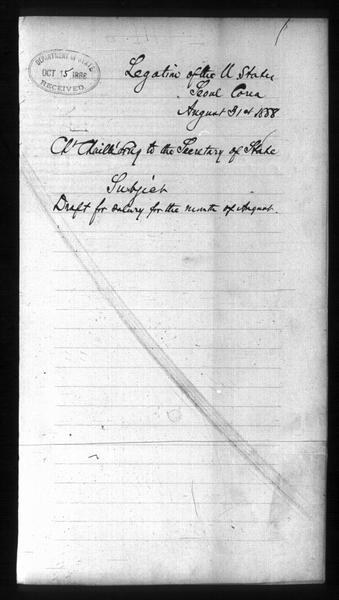 DEPARTMENT OF STATE
OCT 15 1888
RECEIVED
Legation of the U States
Seoul Corea
August 31st 1888
Ch. Chaillé Long to the Secretary of State
Subject
Draft for salary for the month of August.